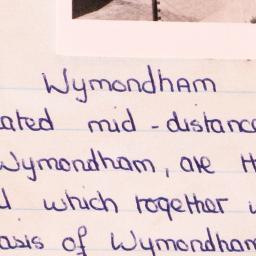 Wymondham
ated mid-distance
Wymondham, are
which together
asis of Wymondham